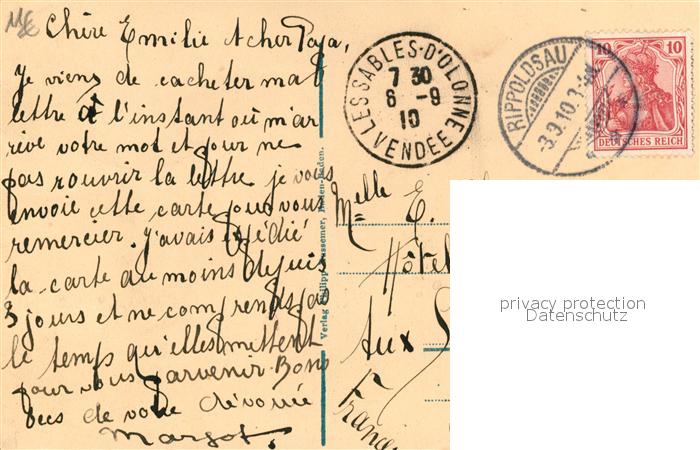 Chère Emilie & cher Papa,
Je viens de cacheter ma
lettre à l'instant où m'ar
rive votre mot et pour ne
pas rouvrir la lettre je vous
envoie cette carte pour vous
remercier. J'avais expédié
la carte au moins depuis
3 jours et ne comprends pas
le temps qu'elles mettent
pour vous parvenir. Bons
becs de votre dévouée
Margot.
LES SABLES-D'OLONNE
7 30
6 -9
10
VENDÉE
RIPPOLDSAU
-3.9.10.
10 10
DEUTSCHES REICH
Melle E.
Hôtel
Aux S
France
Verlag Philipp Kussemer, Baden-Baden.
privacy protection
Datenschutz